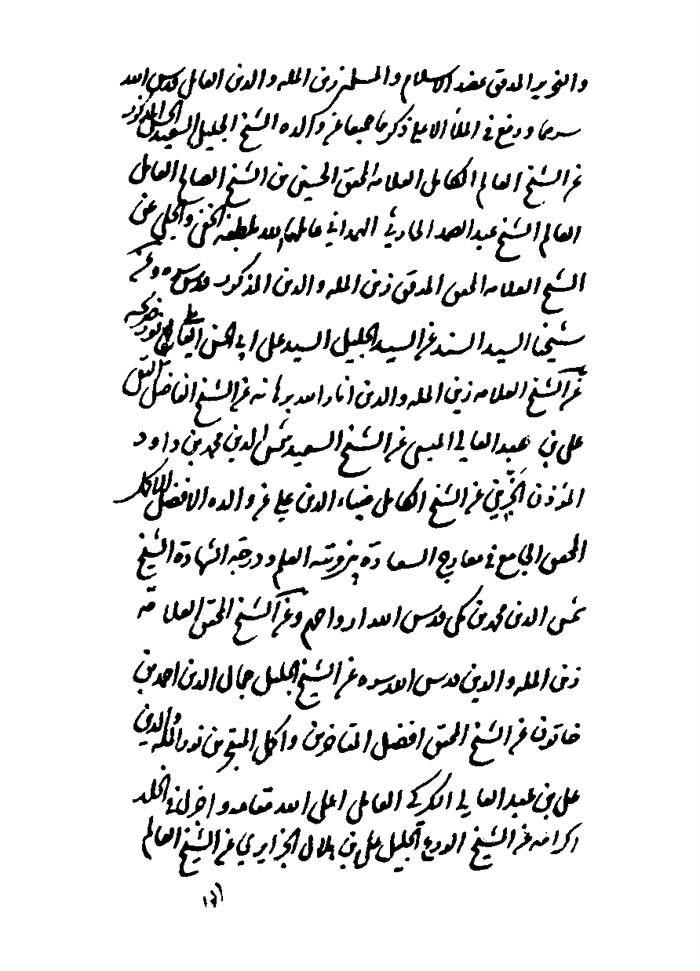 والنحرير المدقق عضد الاسلام والمسلمين زين المله والدين العاملي قدس الله
سرهما ورفع في الملأ الاعلى ذكرهما جميعا عن والده الشيخ الجليل السعيد المذكور
عن الشيخ العالم الكامل العلامة المحقق الحسين بن الشيخ الصالح العامل
العالم الشيخ عبد الصمد الحارثي الهمداني عاملهما الله بلطفه الخفي والجلي عن
الشيخ العلامه المحقق المدقق زين المله والدين المذكور قدس سره وعن
شيخنا السيد السند عن السيد الجليل السيد علي ابي الحسن العاملي نور
عن الشيخ العلامه زين المله والدين انار الله برهانه عن الشيخ الفاضل التقي
علي بن عبد العالي الميسي عن الشيخ السعيد شمس الدين محمد بن داود
المؤذن الجزيني عن الشيخ الكامل ضياء الدين علي عن والده الافضل الاكمل
المحقق الجامع في معارج السعادة بين رتبه العلم ودرجه الشهادة الشيخ
شمس الدين محمد بن مكي قدس الله ارواحهم وعن الشيخ المحقق العلامة
زين المله والدين قدس الله سره عن الشيخ الجليل جمال الدين احمد بن
خاتون عن الشيخ المحقق افضل المتاخرين واكمل المتبحرين نور المله والدين
علي بن عبد العالي الكركي العاملي اعلى الله مقامه واجزل في الخلد
اكرامه عن الشيخ الورع الجليل علي بن هلال الجزايري عن الشيخ العالم